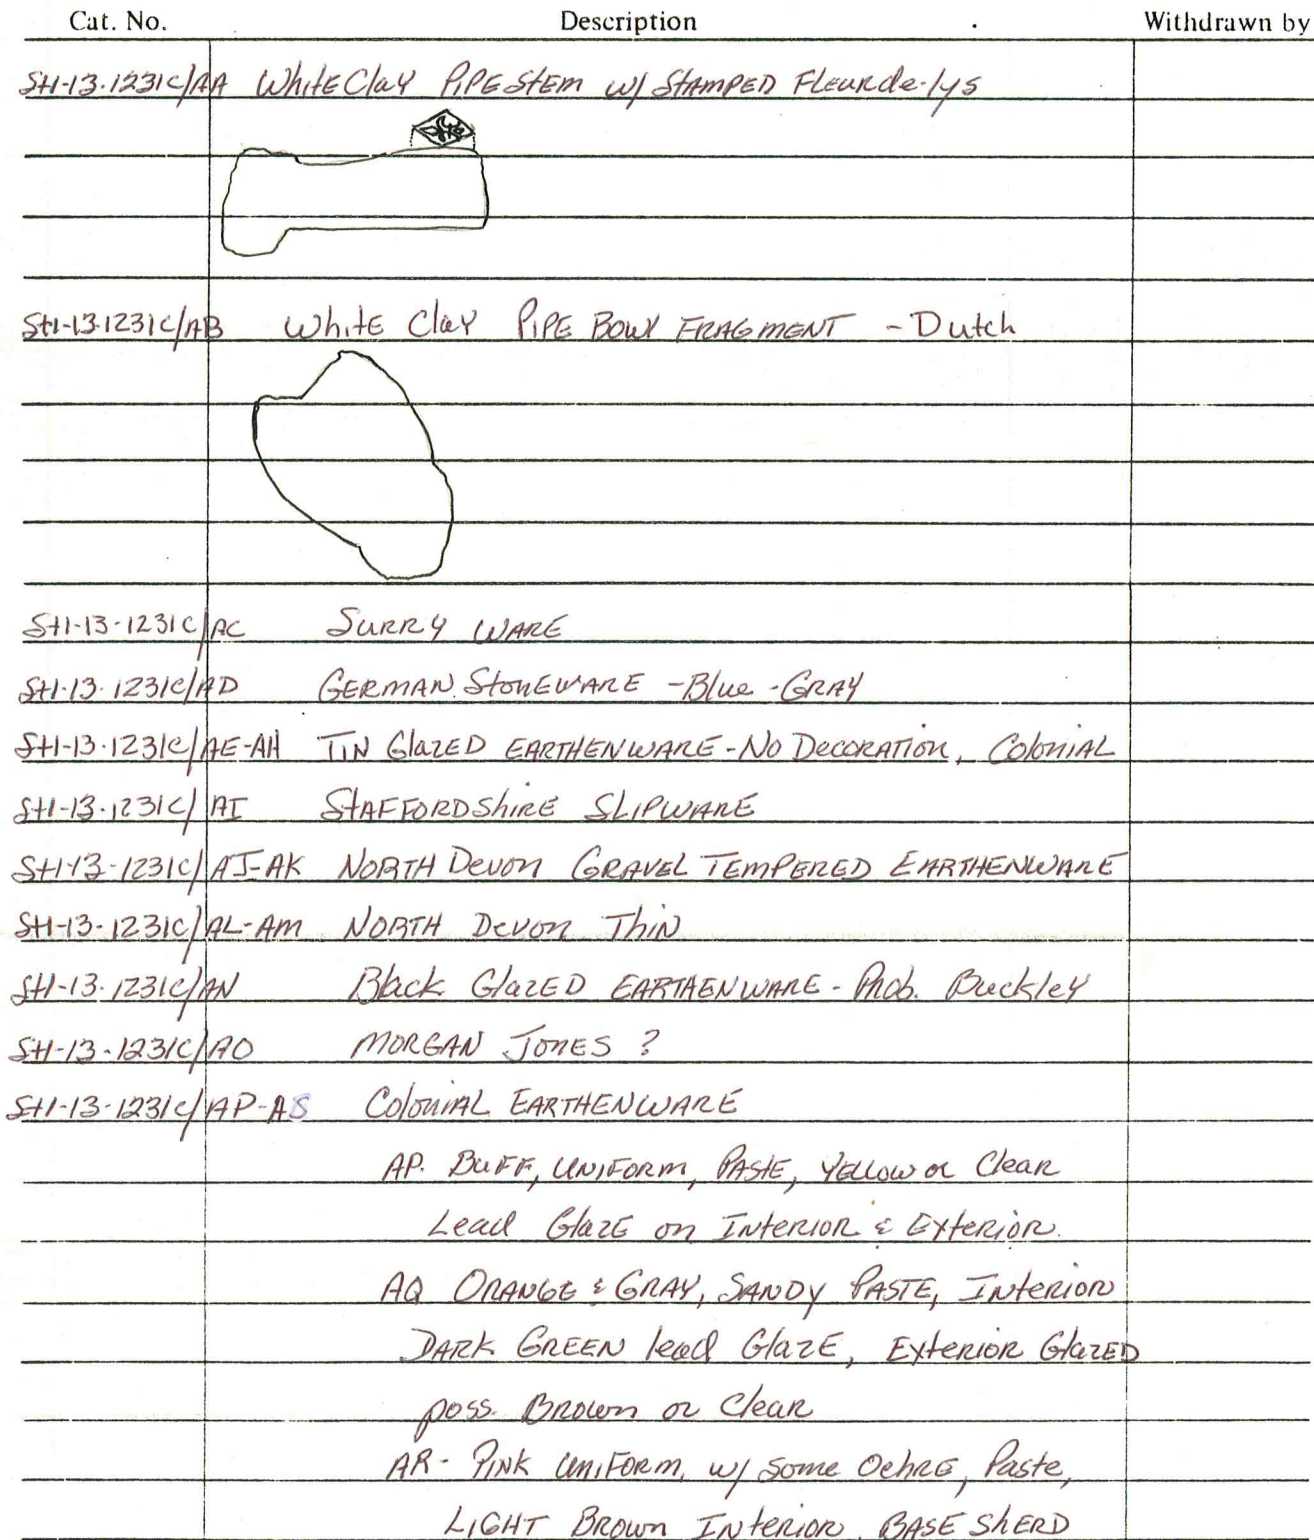 Cat. No. Description Withdrawn by
St1-13-1231C/AA White Clay PIPE Stem w/ STAMPED FLEUR de-lys
St1-13-1231C/AB White Clay PIPE Bowl FRAGMENT - Dutch
St1-13-1231C/AC SURRY WARE
St1-13-1231C/AD GERMAN StoneWARE -Blue-GRAY
St1-13-1231C/AE-AH TIN GlazED EARTHENWARE-No DecoRATION, ColoNIAL
St1-13-1231C/AI StAFFORDShiRE SLIPWARE
St1-13-1231C/AJ-AK NORTH Devon GRAVEL TEMPERED EARTHENWARE
St1-13-1231C/AL-AM NORTH Devon Thin
St1-13-1231C/AN Black GlazED EARTHENWARE - Prob. Buckley
St1-13-1231C/AO MORGAN JONES ?
St1-13-1231C/AP-AS ColoNIAL EARTHENWARE
AP. BUFF, UNIFORM, PASTE, YELLOW or Clear
Lead GlazE on INTERIOR & EXTERIOR.
AQ ORANGE & GRAY, SANDY PASTE, INTERIOR
DARK GREEN lead GlazE, EXTERIOR GlazED
poss. BROWN or Clear
AR- PINK UNIFORM, w/ some OchRE, Paste,
LIGHT BROWN INTERIOR. BASE SHERD